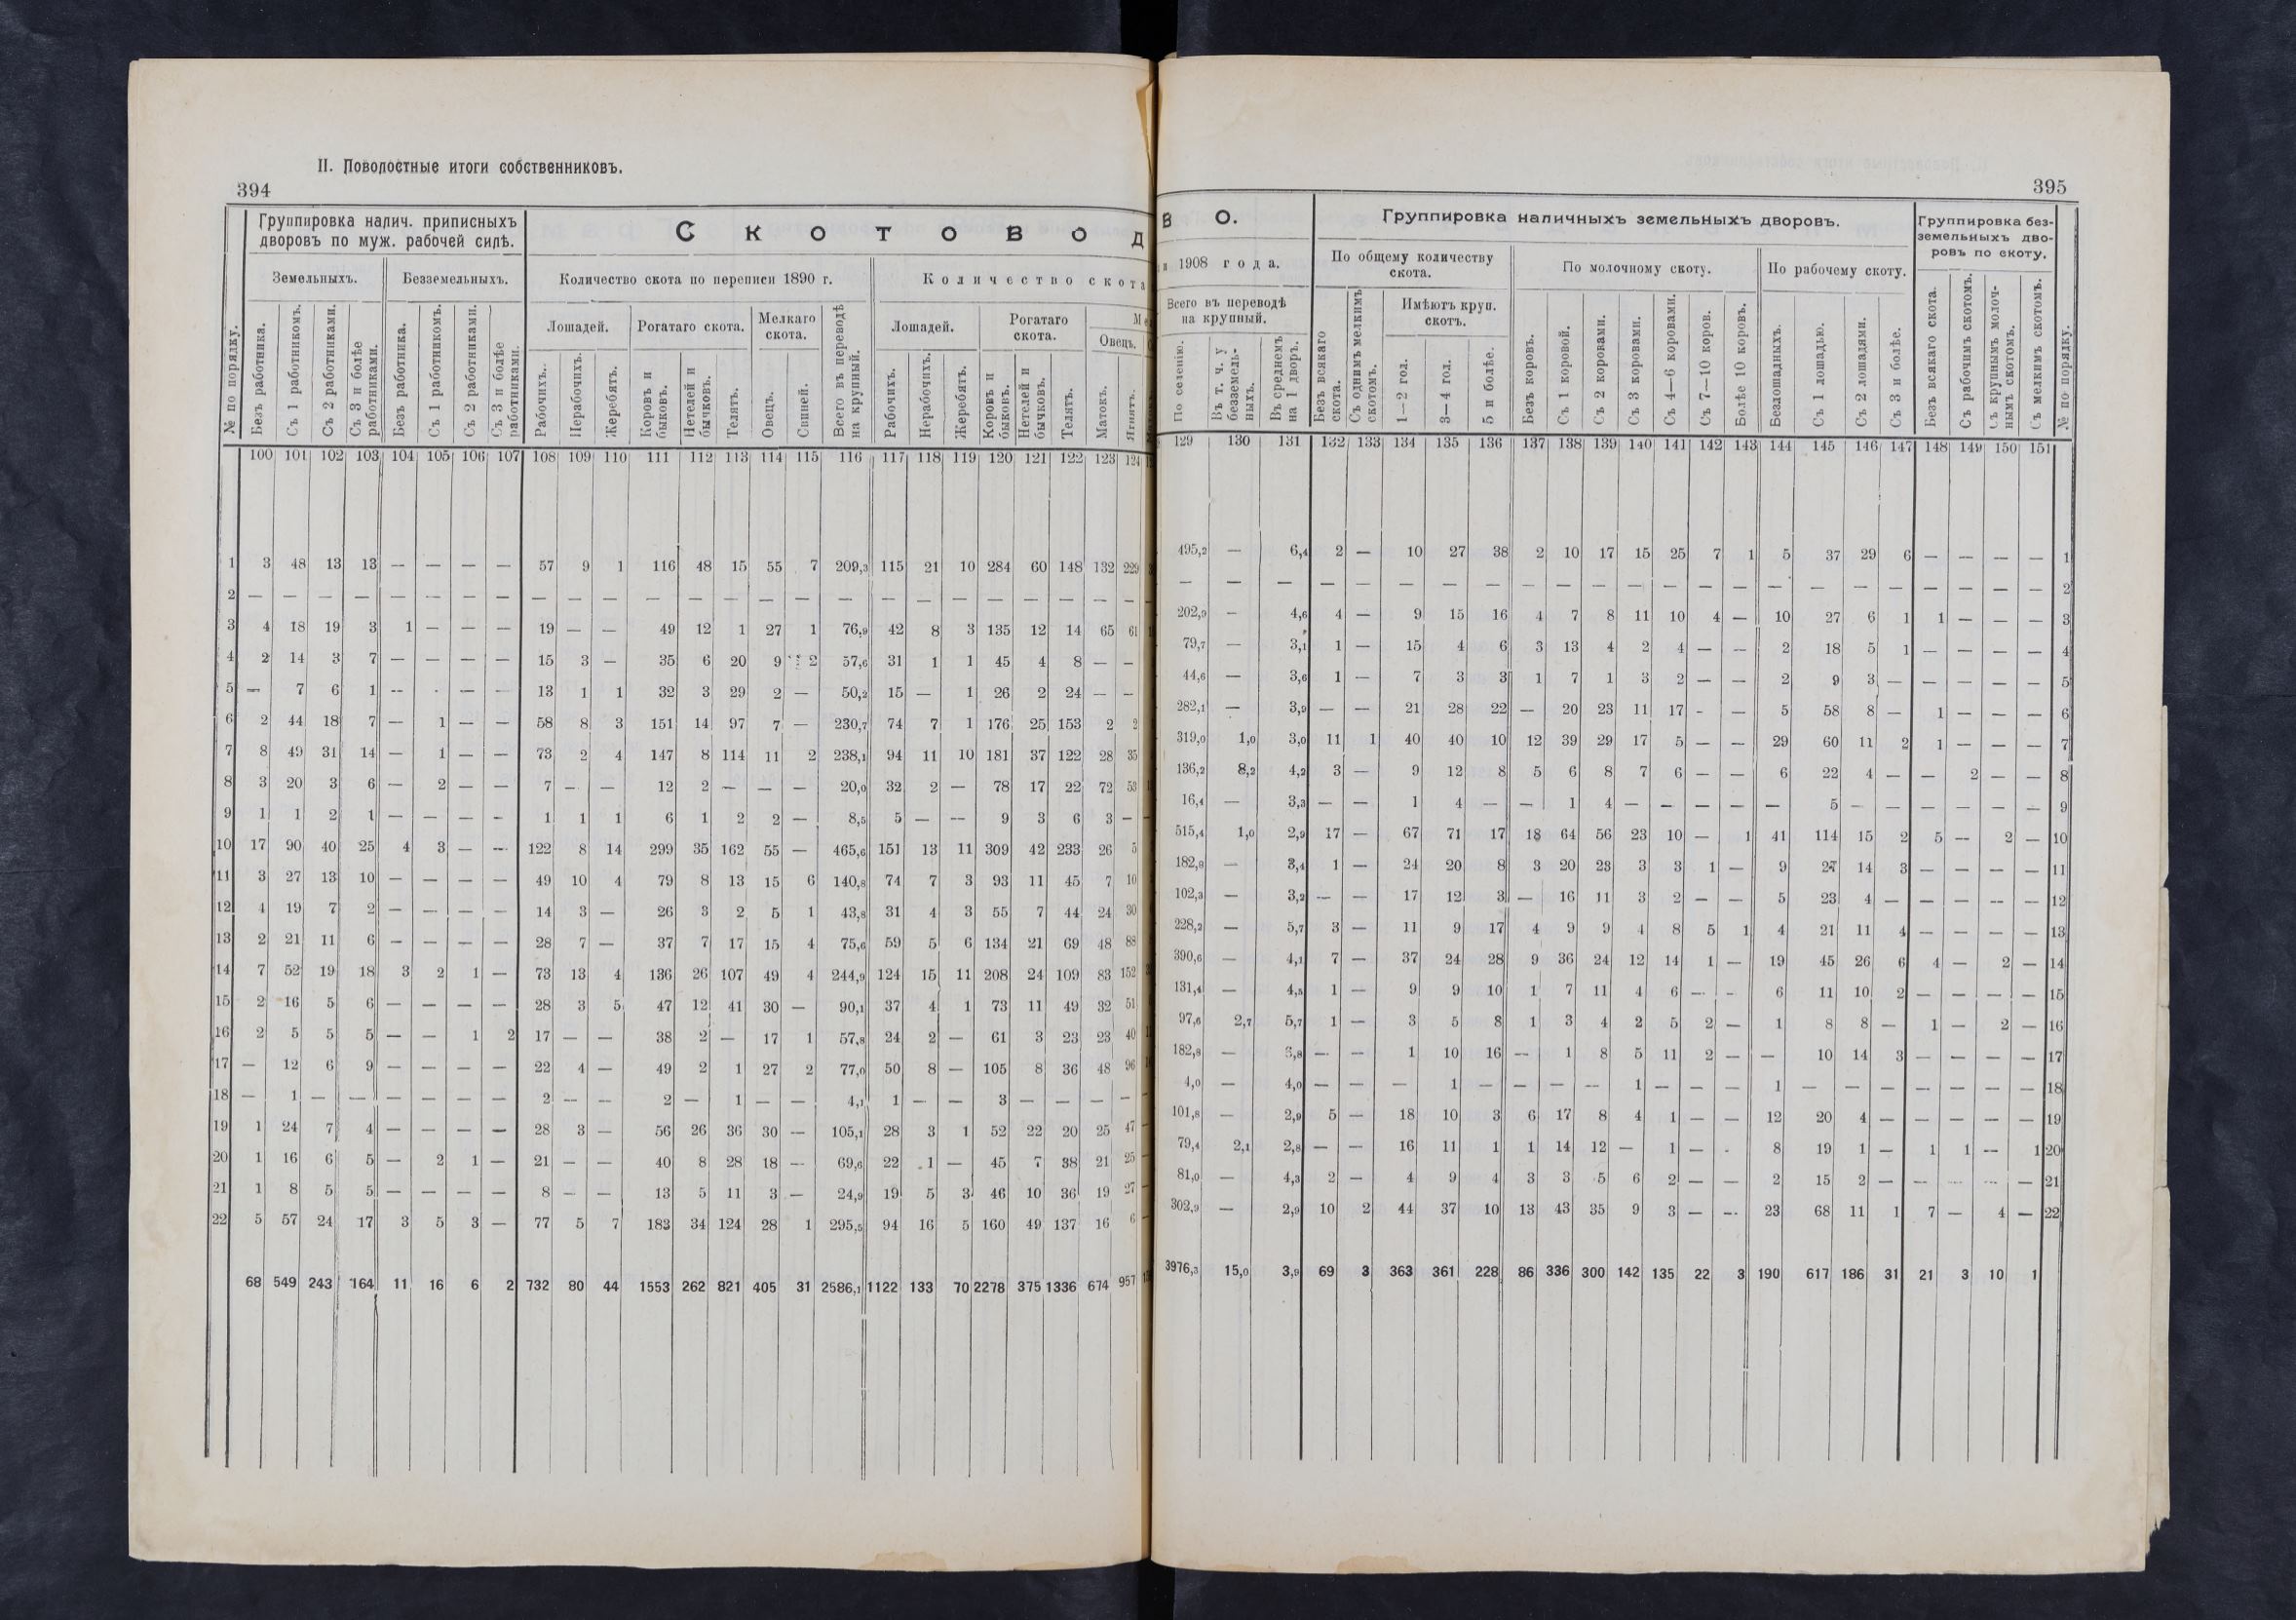 II. Поволостные итоги собственниковъ.
394
Группировка налич. приписныхъ дворовъ по муж. рабочей силѣ.
С К О Т О В О Д
Земельныхъ. Безземельныхъ. Количество скота по переписи 1890 г. Количество скота
Лошадей. Рогатаго скота. Мелкаго скота. Лошадей. Рогатаго скота. Овецъ.
№ по порядку. Безъ работника. Съ 1 работникомъ. Съ 2 работниками. Съ 3 и болѣе работниками. Безъ работника. Съ 1 работникомъ. Съ 2 работниками. Съ 3 и болѣе работниками. Рабочихъ. Нерабочихъ. Жеребятъ. Коровъ и быковъ. Нетелей и бычковъ. Телятъ. Овецъ. Свиней. Всего въ переводѣ на крупный. Рабочихъ. Нерабочихъ. Жеребятъ. Коровъ и быковъ. Нетелей и бычковъ. Телятъ. Матокъ. Ягнятъ.
100 101 102 103 104 105 106 107 108 109 110 111 112 113 114 115 116 117 118 119 120 121 122 123 124
1 3 48 13 13 — — — — 57 9 1 116 48 15 55 7 209,3 115 21 10 284 60 148 132 229
2 — — — — — — — — — — — — — — — — — — — — — — — — —
3 4 18 19 3 1 — — — 19 — — 49 12 1 27 1 76,9 42 8 3 135 12 14 65 61
4 2 14 3 7 — — — — 15 3 — 35 6 20 9 2 57,6 31 1 1 45 4 8 — —
5 — 7 6 1 — — — — 13 1 1 32 3 29 2 — 50,2 15 — 1 26 2 24 — —
6 2 44 18 7 — 1 — — 58 8 3 151 14 97 7 — 230,7 74 7 1 176 25 153 2 2
7 8 49 31 14 — 1 — — 73 2 4 147 8 114 11 2 238,1 94 11 10 181 37 122 28 35
8 3 20 3 6 — 2 — — 7 — — 12 2 — — — 20,0 32 2 — 78 17 22 72 53
9 1 1 2 1 — — — — 1 1 1 6 1 2 2 — 8,5 5 — — 9 3 6 3 —
10 17 90 40 25 4 3 — — 122 8 14 299 35 162 55 — 465,6 151 13 11 309 42 233 26 5
11 3 27 13 10 — — — — 49 10 4 79 8 13 15 6 140,8 74 7 3 93 11 45 7 10
12 4 19 7 2 — — — — 14 3 — 26 3 2 5 1 43,8 31 4 3 55 7 44 24 30
13 2 21 11 6 — — — — 28 7 — 37 7 17 15 4 75,6 59 5 6 134 21 69 48 88
14 7 52 19 18 3 2 1 — 73 13 4 136 26 107 49 4 244,9 124 15 11 208 24 109 83 152
15 2 16 5 6 — — — — 28 3 5 47 12 41 30 — 90,1 37 4 1 73 11 49 32 51
16 2 5 5 5 — — 1 2 17 — — 38 2 — 17 1 57,8 24 2 — 61 3 23 23 40
17 — 12 6 9 — — — — 22 4 — 49 2 1 27 2 77,0 50 8 — 105 8 36 48 96
18 — 1 — — — — — — 2 — — 2 — 1 — — 4,1 1 — — 3 — — — —
19 1 24 7 4 — — — — 28 3 — 56 26 36 30 — 105,1 28 3 1 52 22 20 25 47
20 1 16 6 5 — 2 1 — 21 — — 40 8 28 18 — 69,6 22 1 — 45 7 38 21 25
21 1 8 5 5 — — — — 8 — — 13 5 11 3 — 24,9 19 5 3 46 10 36 19 27
22 5 57 24 17 3 5 3 — 77 5 7 183 34 124 28 1 295,5 94 16 5 160 49 137 16 6
68 549 243 164 11 16 6 2 732 80 44 1553 262 821 405 31 2586,1 1122 133 70 2278 375 1336 674 957
395
В О. Группировка наличныхъ земельныхъ дворовъ. Группировка безземельныхъ дворовъ по скоту.
1908 года. По общему количеству скота. По молочному скоту. По рабочему скоту.
Всего въ переводѣ на крупный. Имѣютъ круп. скотъ.
По селенію. Въ т. ч. у безземельныхъ. Въ среднемъ на 1 дворъ. Безъ всякаго скота. Съ однимъ мелкимъ скотомъ. 1—2 гол. 3—4 гол. 5 и болѣе. Безъ коровъ. Съ 1 коровой. Съ 2 коровами. Съ 3 коровами. Съ 4—6 коровами. Съ 7—10 коров. Болѣе 10 коровъ. Безлошадныхъ. Съ 1 лошадью. Съ 2 лошадями. Съ 3 и болѣе. Безъ всякаго скота. Съ рабочимъ скотомъ. Съ крупнымъ молочнымъ скотомъ. Съ мелкимъ скотомъ. № по порядку.
129 130 131 132 133 134 135 136 137 138 139 140 141 142 143 144 145 146 147 148 149 150 151
495,2 — 6,4 2 — 10 27 38 2 10 17 15 25 7 1 5 37 29 6 — — — — 1
— — — — — — — — — — — — — — — — — — — — — — — 2
202,9 — 4,6 4 — 9 15 16 4 7 8 11 10 4 — 10 27 6 1 1 — — — 3
79,7 — 3,1 1 — 15 4 6 3 13 4 2 4 — — 2 18 5 1 — — — — 4
44,6 — 3,6 1 — 7 3 3 1 7 1 3 2 — — 2 9 3 — — — — — 5
282,1 — 3,9 — — 21 28 22 — 20 23 11 17 - — 5 58 8 — 1 — — — 6
319,0 1,0 3,0 11 1 40 40 10 12 39 29 17 5 — — 29 60 11 2 1 — — — 7
136,2 8,2 4,2 3 — 9 12 8 5 6 8 7 6 — — 6 22 4 — — 2 — — 8
16,4 — 3,3 — — 1 4 — — 1 4 — — — — — 5 — — — — — — 9
515,4 1,0 2,9 17 — 67 71 17 18 64 56 23 10 — 1 41 114 15 2 5 — 2 — 10
182,9 — 3,4 1 — 24 20 8 3 20 23 3 3 1 — 9 27 14 3 — — — — 11
102,3 — 3,2 — — 17 12 3 — 16 11 3 2 — — 5 23 4 — — — — — 12
228,2 — 5,7 3 — 11 9 17 4 9 9 4 8 5 1 4 21 11 4 — — — — 13
390,6 — 4,1 7 — 37 24 28 9 36 24 12 14 1 — 19 45 26 6 4 — 2 — 14
131,4 — 4,5 1 — 9 9 10 1 7 11 4 6 — - 6 11 10 2 — — — — 15
97,6 2,7 5,7 1 — 3 5 8 1 3 4 2 5 2 — 1 8 8 — 1 — 2 — 16
182,8 — 6,8 — — 1 10 16 — 1 8 5 11 2 — — 10 14 3 — — — — 17
4,0 — 4,0 — — — 1 — — — — 1 — — — 1 — — — — — — — 18
101,8 — 2,9 5 — 18 10 3 6 17 8 4 1 — — 12 20 4 — — — — — 19
79,4 2,1 2,8 — — 16 11 1 1 14 12 — 1 — - 8 19 1 — 1 1 — 1 20
81,0 — 4,3 2 — 4 9 4 3 3 5 6 2 — — 2 15 2 — — — — — 21
302,9 — 2,9 10 2 44 37 10 13 43 35 9 3 — — 23 68 11 1 7 — 4 — 22
3976,3 15,0 3,9 69 3 363 361 228 86 336 300 142 135 22 3 190 617 186 31 21 3 10 1